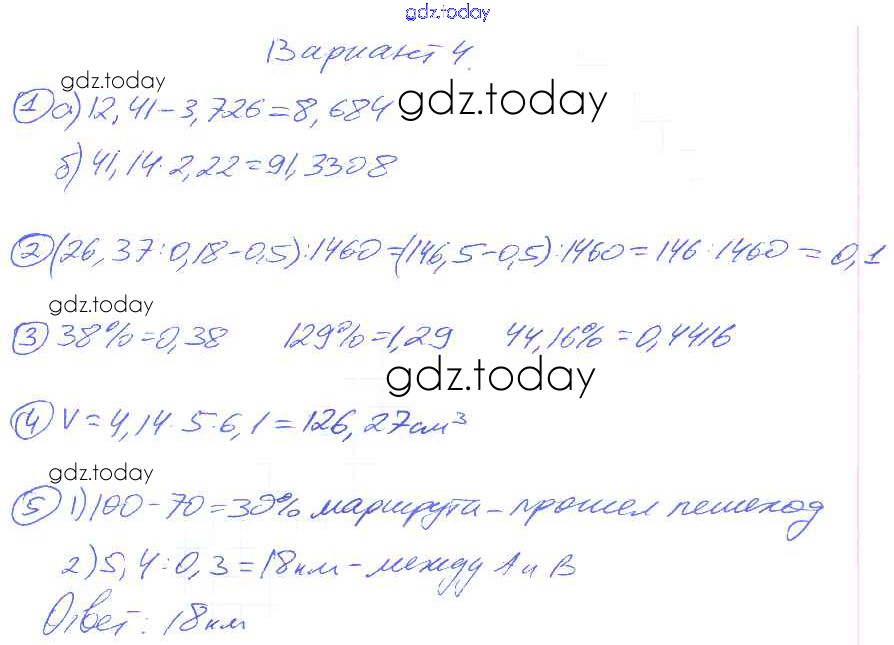 gdz.today
Вариант 4.
gdz.today
① а) 12,41-3,726=8,684
gdz.today
б) 41,14·2,22=91,3308
② (26,37:0,18-0,5):1460=(146,5-0,5):1460=146:1460=0,1
gdz.today
③ 38%=0,38 129%=1,29 44,16%=0,4416
gdz.today
④ V=4,14·5·6,1=126,27см³
gdz.today
⑤ 1) 100-70=30% маршрута-прошел пешеход
2) 5,4:0,3=18км-между А и В
Ответ: 18км